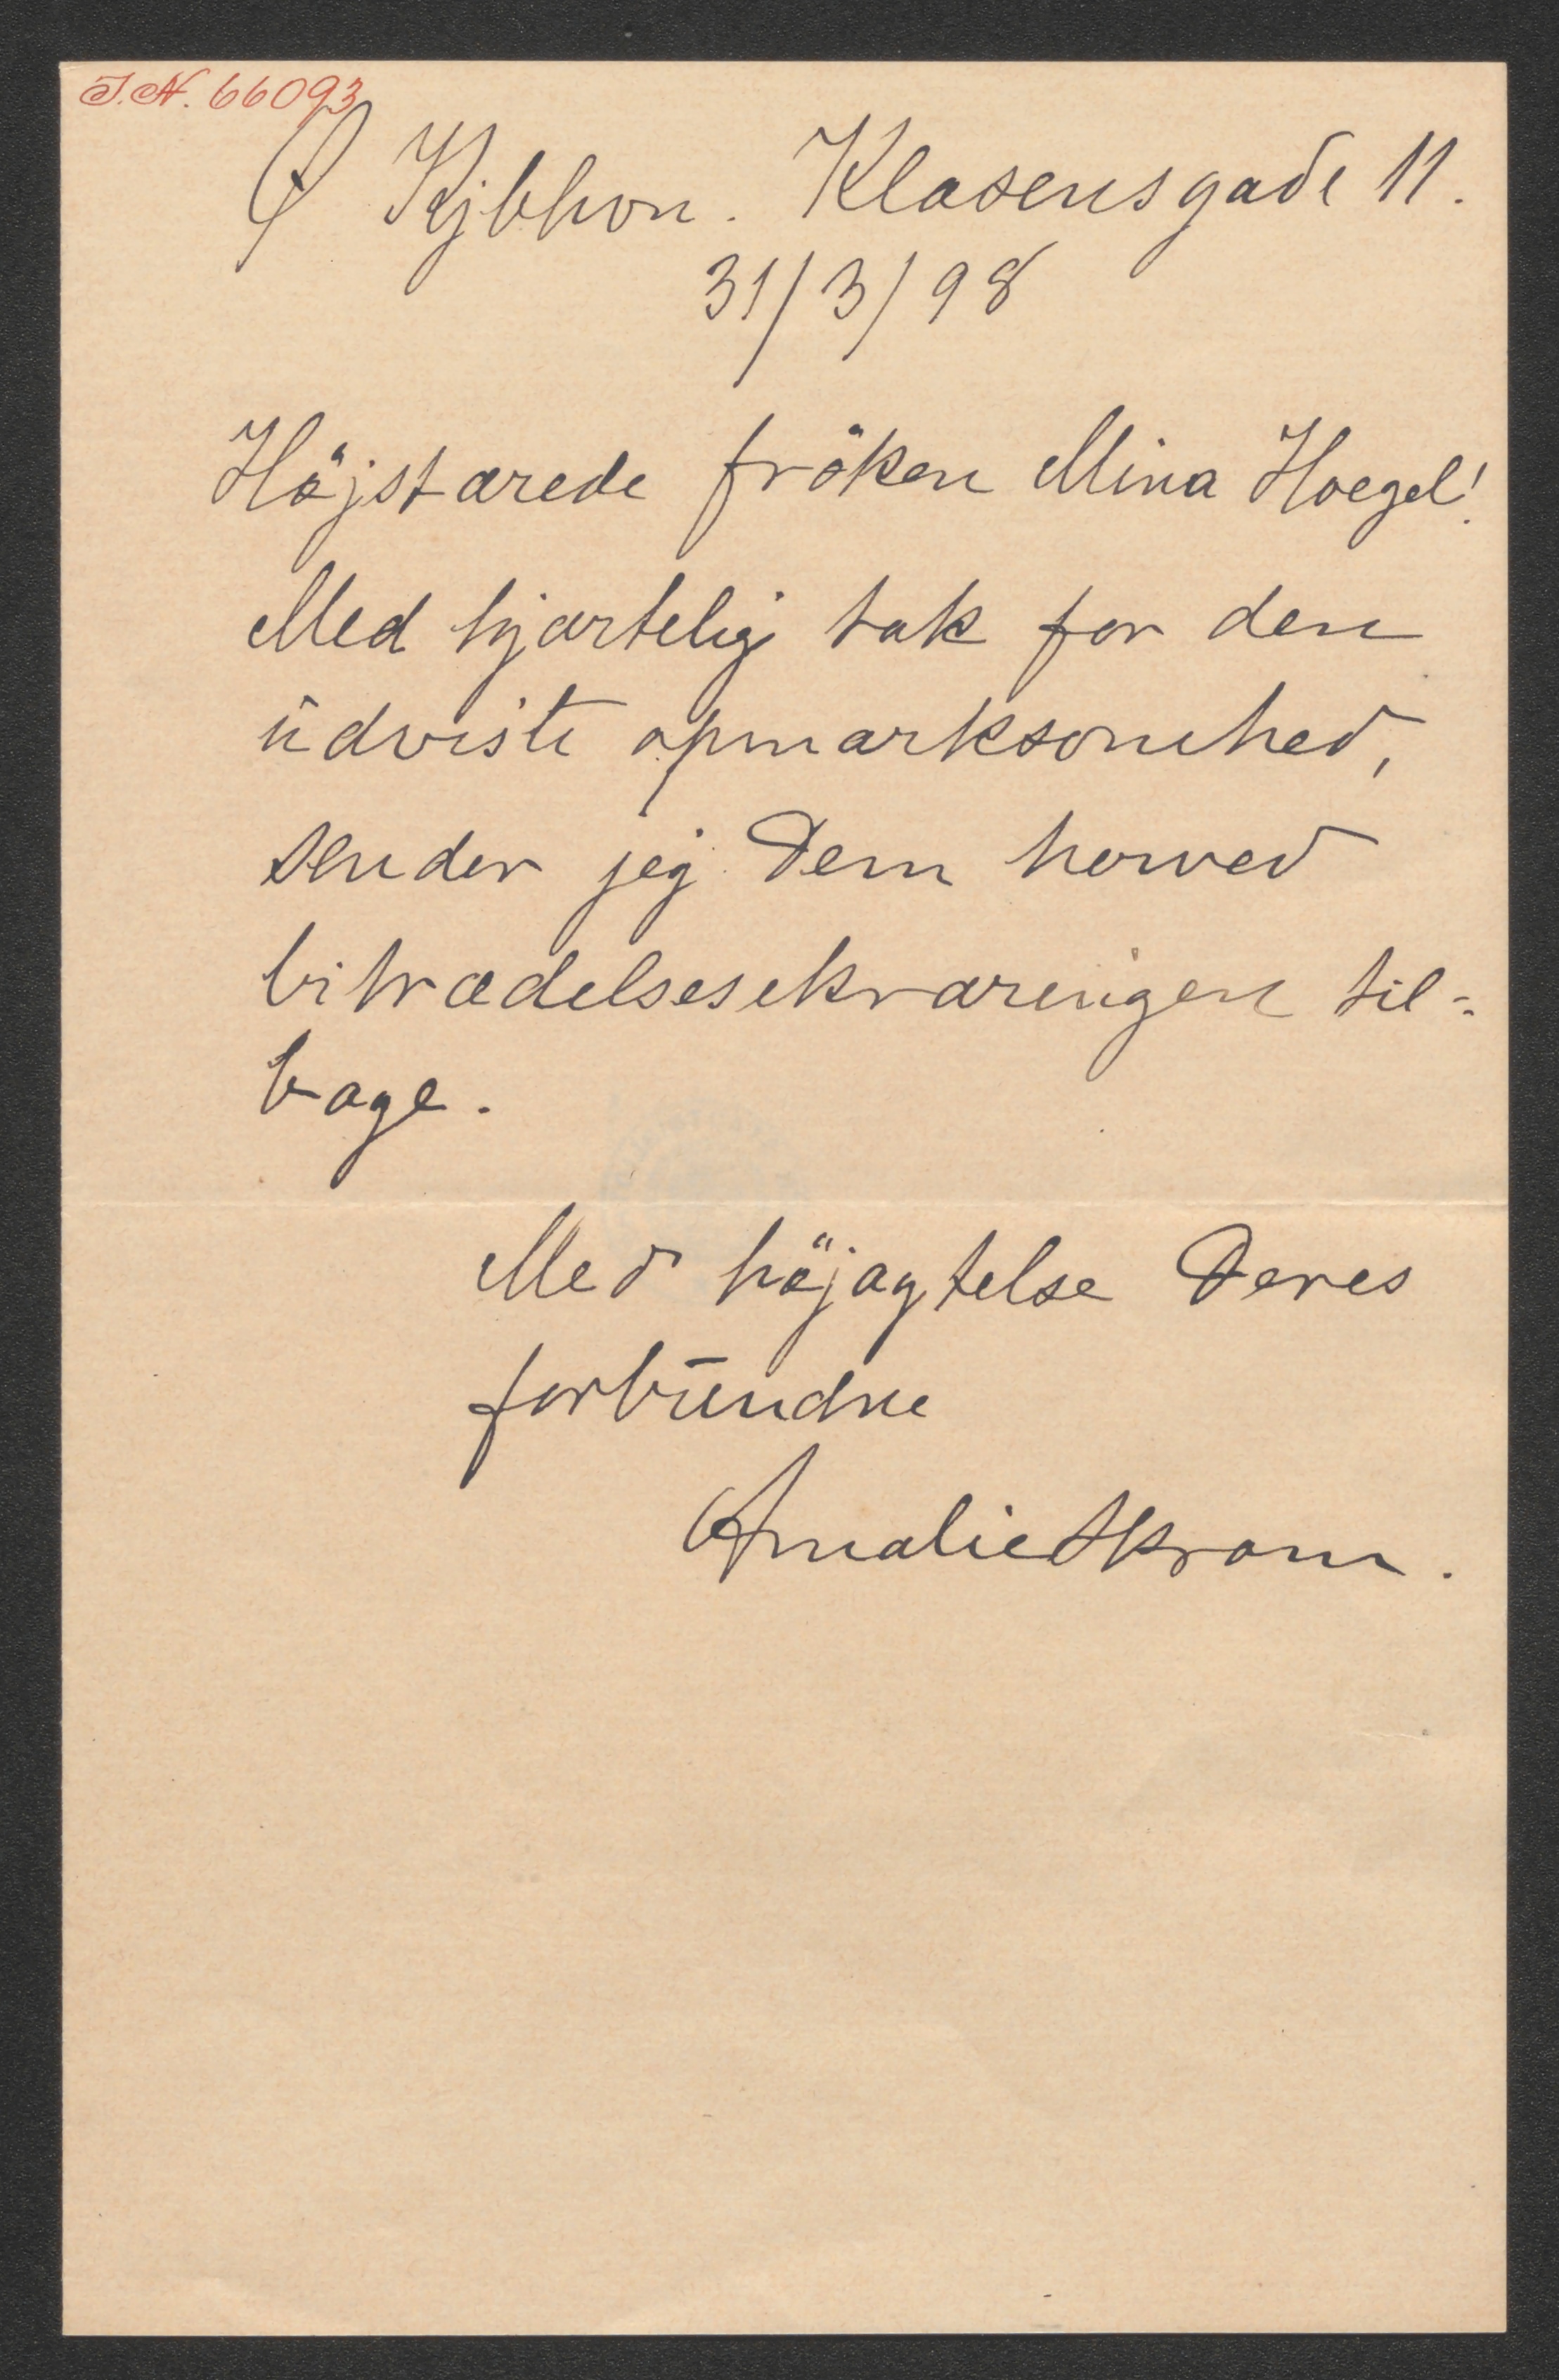 I.N. 66093
Ø Kjbhvn. Klasensgade 11.
31/3/98
Höjstærede fröken Mina Hoegel!
Med hjærtelig tak for den
udviste opmærksomhed,
sender jeg Dem herved
bitrædelseserkræringen til-
bage.
Med höjagtelse Deres
forbundne
Amalie Skram.